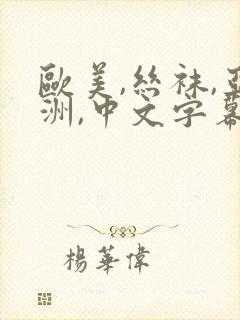 歐美,絲袜,亞
洲,中文字幕
楊華偉